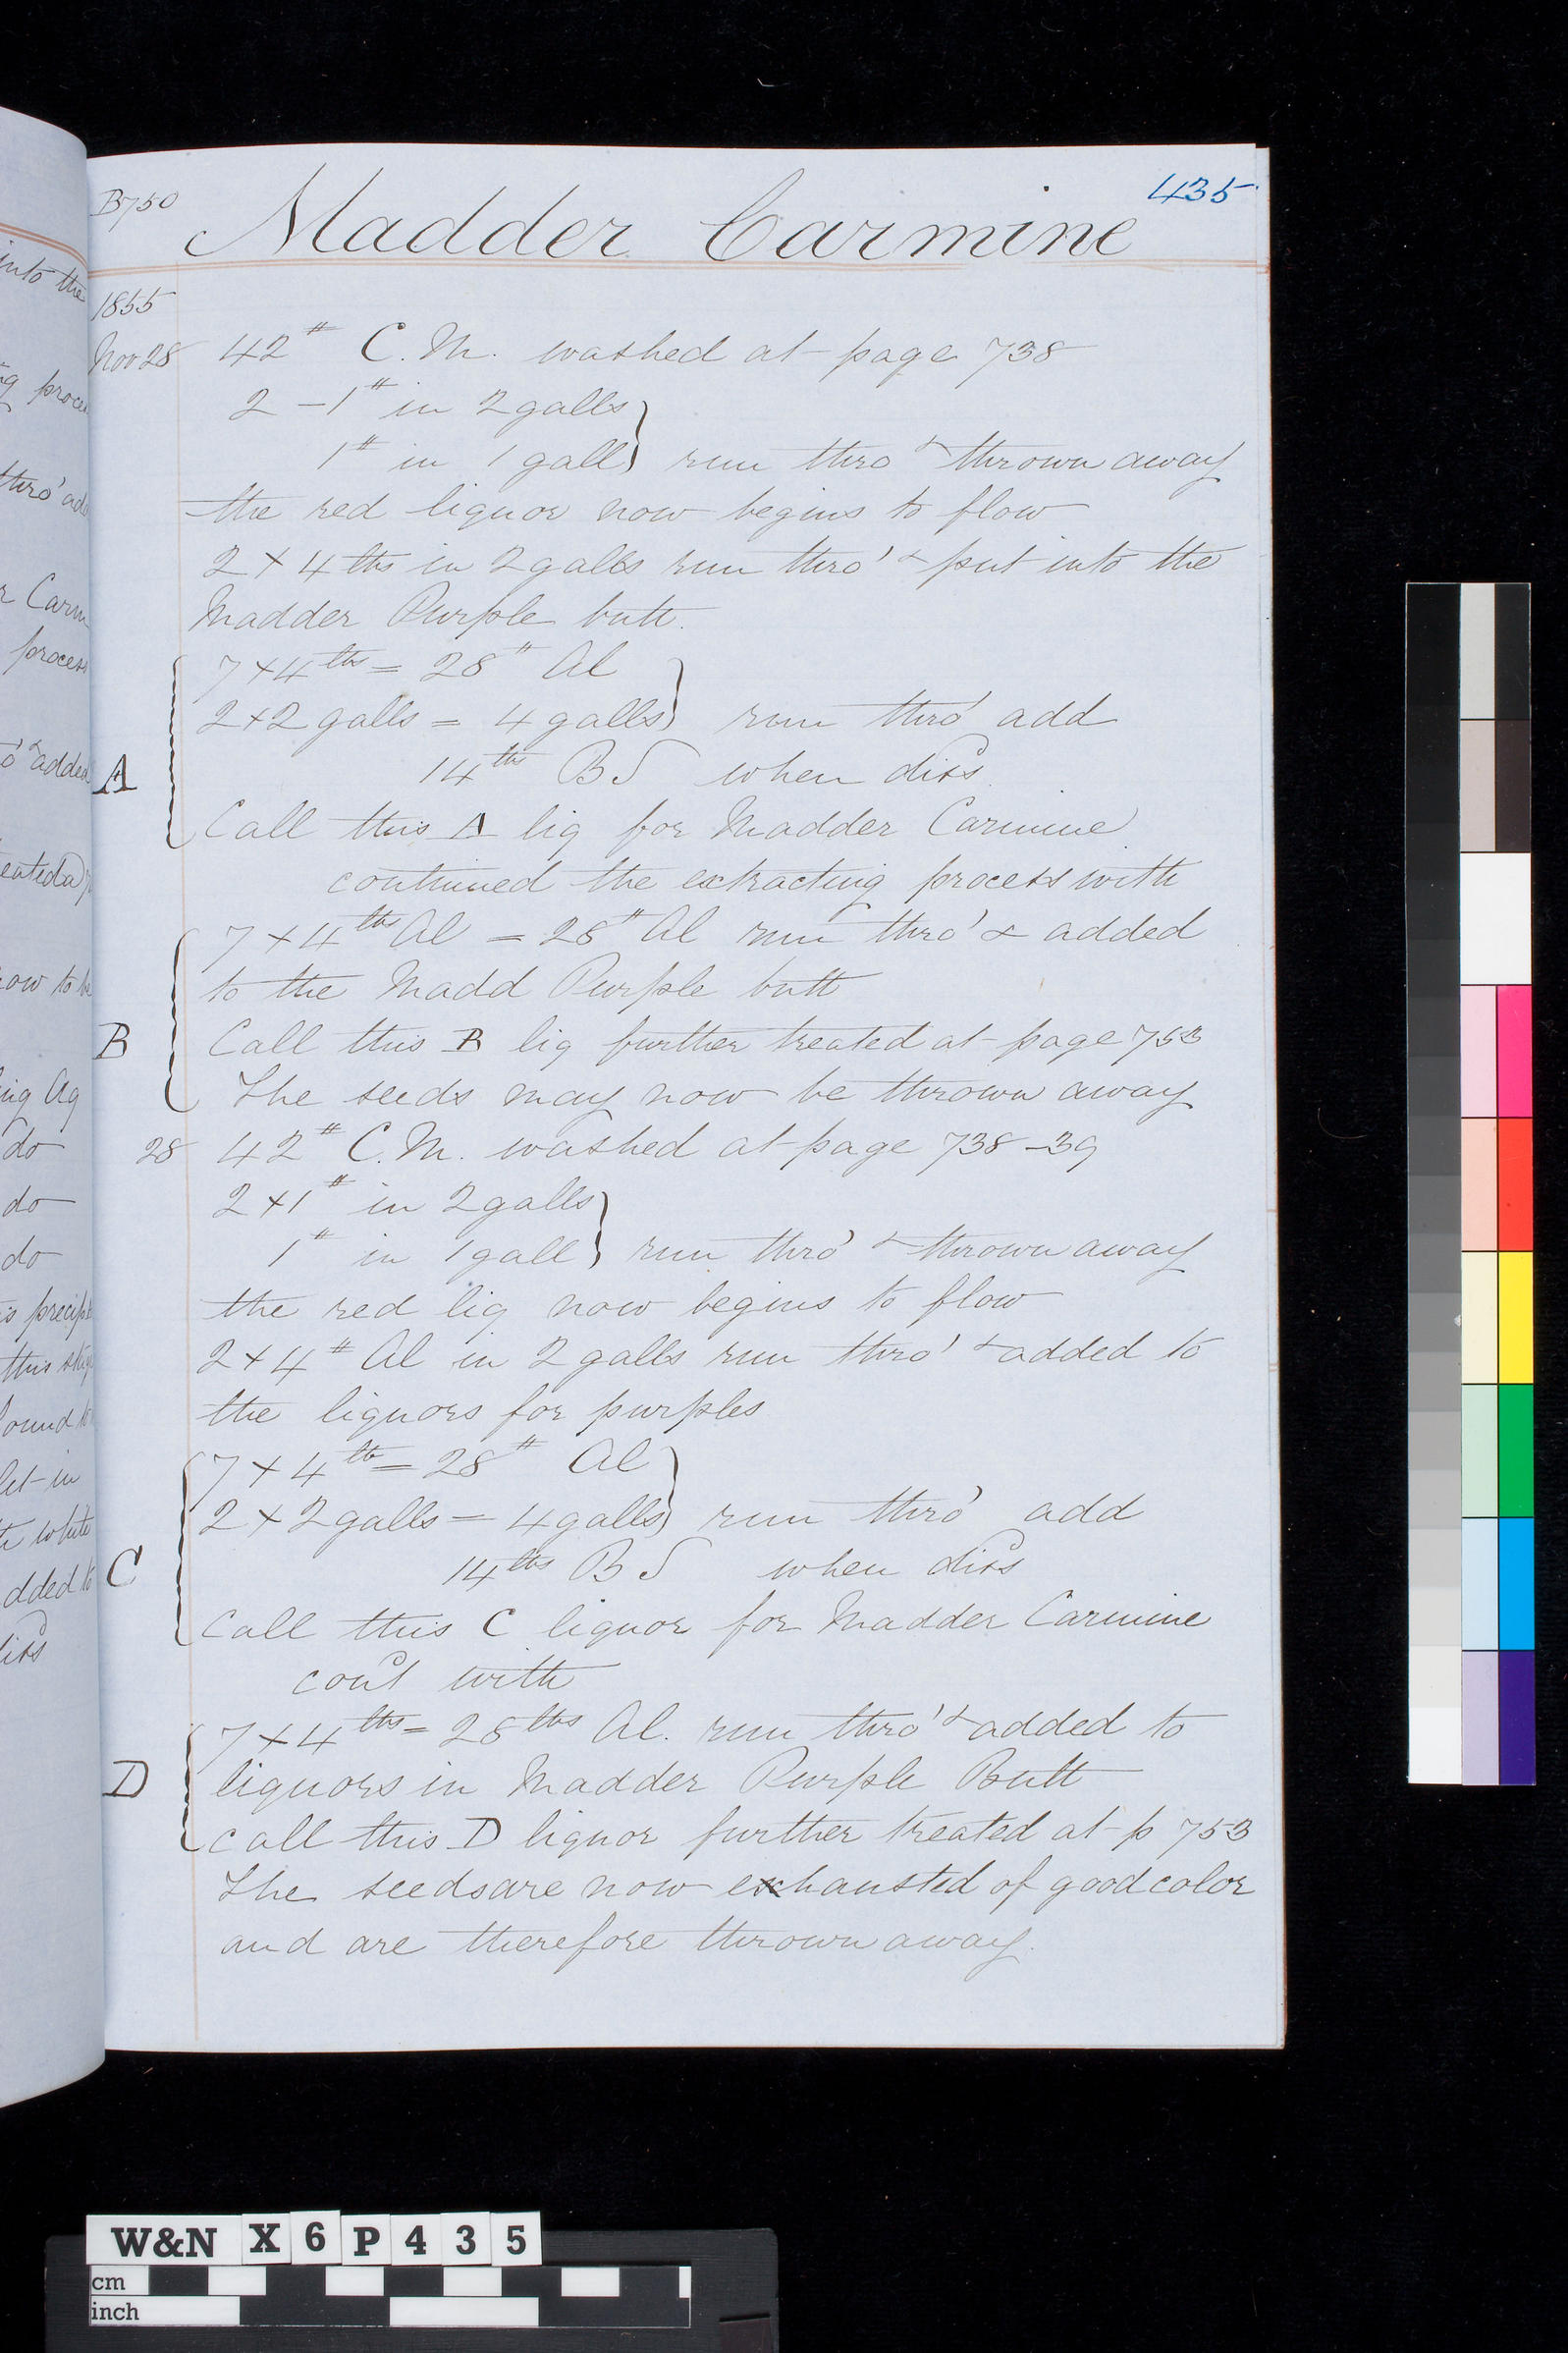 into the
g proce
thro' add
r Carm
process
o' & added
eated a
ow to be
ing Aq
do
do
do
is precip
this stag
ound to
let in
white
dded to
diss
B750
435
Madder Carmine
1855
Nov 28 42# C.M. washed at page 738
2 - 1# in 2 galls
1# in 1 gall } run thro & thrown away
the red liquor now begins to flow
2 + 4 lbs in 2 galls run thro' & put into the
Madder Purple butt.
7 + 4 lbs = 28# Al
2 + 2 galls = 4 galls } run thro' add
A 14 lbs B S when diss
Call this A liq for Madder Carmine
continued the extracting process with
7 + 4 lbs Al = 28# Al run thro' & added
to the Madd Purple butt
B Call this B liq further treated at page 753
The seeds may now be thrown away
28 42# C.M. washed at page 738-39
2 + 1# in 2 galls
1# in 1 gall } run thro' & thrown away
the red liq now begins to flow
2 + 4# Al in 2 galls run thro' & added to
the liquors for purples
7 + 4 lb = 28# Al
2 + 2 galls = 4 galls } run thro' add
C 14 lbs B S when diss
Call this C liquor for Madder Carmine
con'd with
7 + 4 lbs = 28 lbs Al. run thro' & added to
D liquors in Madder Purple Butt
call this D liquor further treated at p 753
The seeds are now exhausted of good color
and are therefore thrown away.
W&N X 6 P 4 3 5
cm
inch